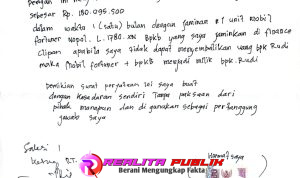 Dengan ini
sebesar Rp. 180.095.500
dalam waktu 1 (satu) bulan dengan jaminan 1 unit mobil
fortuner Nopol. L. 1780. Bpkb yang saya jaminkan di finance
Clipan apabila saya tidak dapat mengembalikan uang bpk. Rudi
maka Mobil fortuner + bpkb menjadi milik bpk. Rudi
Demikian surat pernyataan ini saya buat
dengan kesadaran sendiri tanpa paksaan dari
pihak manapun dan di gunakan sebagai pertanggung
jawab saya
Saksi 1
Hormat saya
REALITA PUBLIK
Berani Mengungkap Fakta